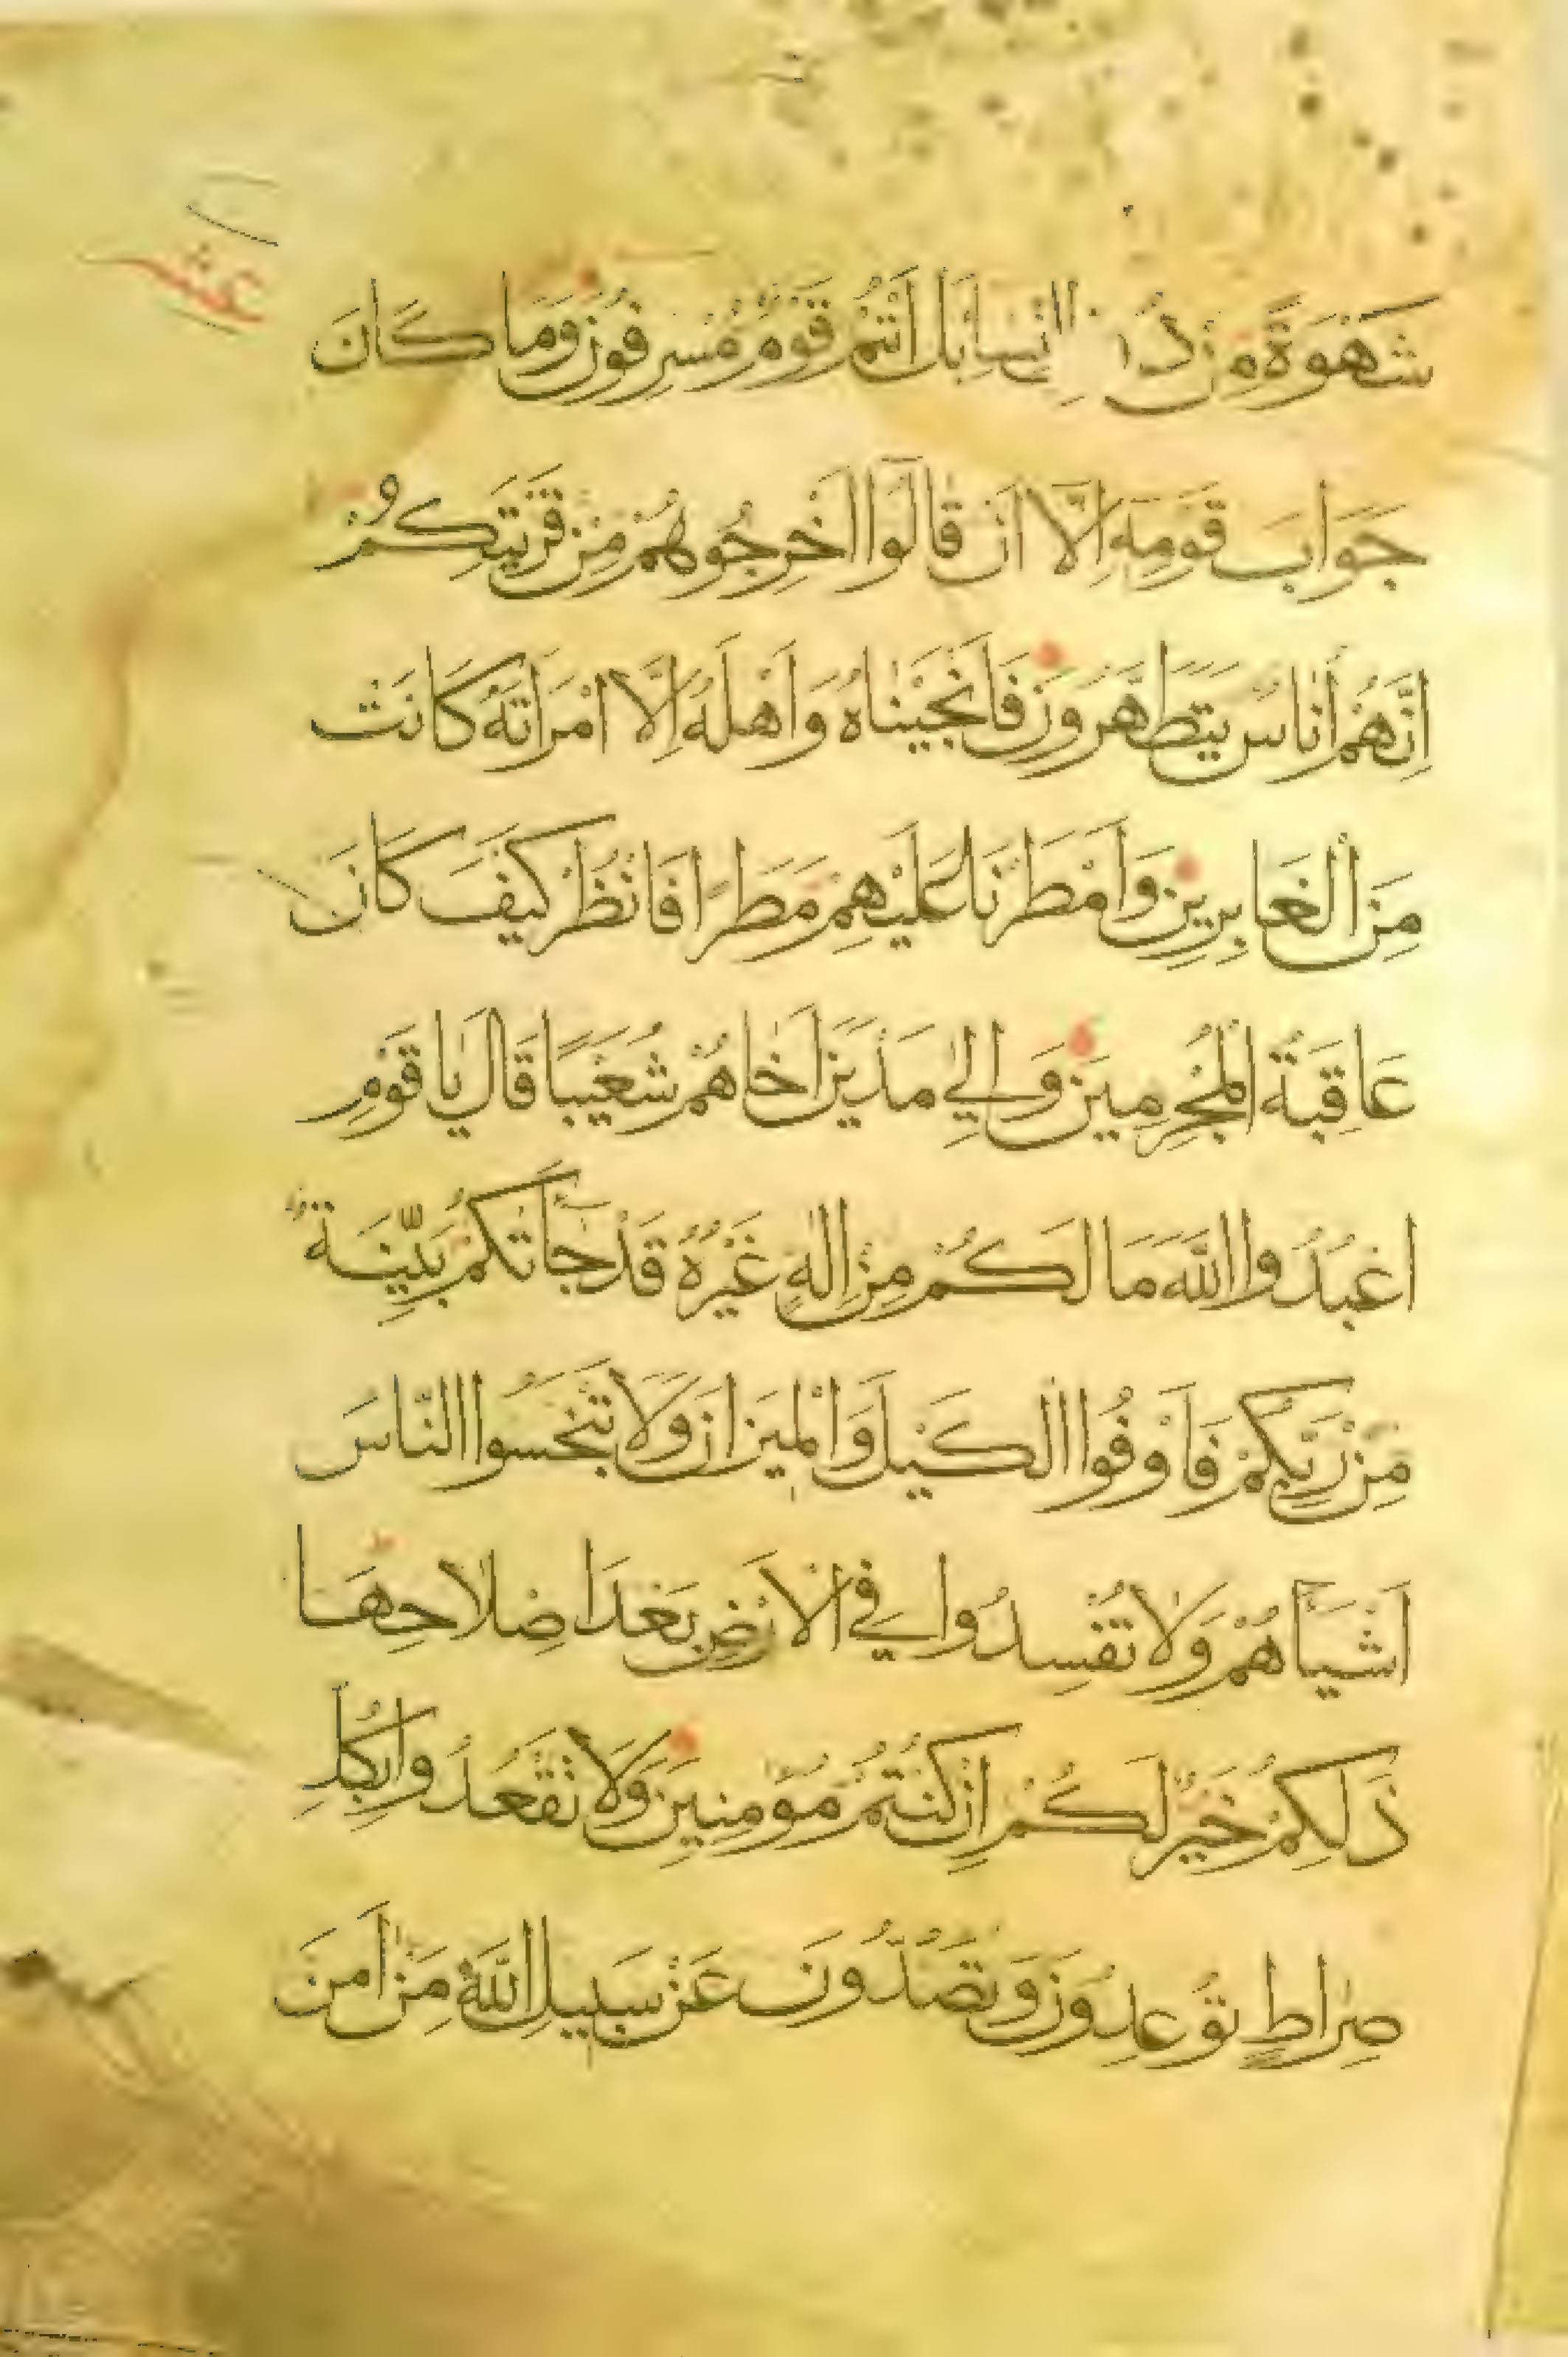 عشر
شَهْوَةً مِنْ دُو النِّسَاءِ بَلْ اَنْتُمْ قَوْمٌ مُسْرِفُونَ وَمَا كَانَ
جَوَابَ قَوْمِهِ اِلَّا اَنْ قَالُوا اَخْرِجُوهُمْ مِنْ قَرْيَتِكُمْ
اِنَّهُمْ اُنَاسٌ يَتَطَهَّرُونَ فَاَنْجَيْنَاهُ وَاَهْلَهُ اِلَّا امْرَاَتَهُ كَانَتْ
مِنَ الْغَابِرِينَ وَاَمْطَرْنَا عَلَيْهِمْ مَطَرًا فَانْظُرْ كَيْفَ كَانَ
عَاقِبَةُ الْمُجْرِمِينَ وَاِلٰي مَدْيَنَ اَخَاهُمْ شُعَيْبًا قَالَ يَا قَوْمِ
اعْبُدُوا اللَّهَ مَا لَكُمْ مِنْ اِلٰهٍ غَيْرُهُ قَدْ جَآاَتْكُمْ بَيِّنَةٌ
مِنْ رَبِّكُمْ فَاَوْفُوا الْكَيْلَ وَالْمِيزَانَ وَلَا تَبْخَسُوا النَّاسَ
اَشْيَآاَهُمْ وَلَا تُفْسِدُوا فِي الْاَرْضِ بَعْدَ اِصْلَاحِهَا
ذٰلِكُمْ خَيْرٌ لَكُمْ اِنْ كُنْتُمْ مُؤْمِنِينَ وَلَا تَقْعُدُوا بِكُلِّ
صِرَاطٍ تُوعِدُونَ وَتَصُدُّونَ عَنْ سَبِيلِ اللَّهِ مَنْ اٰمَنَ